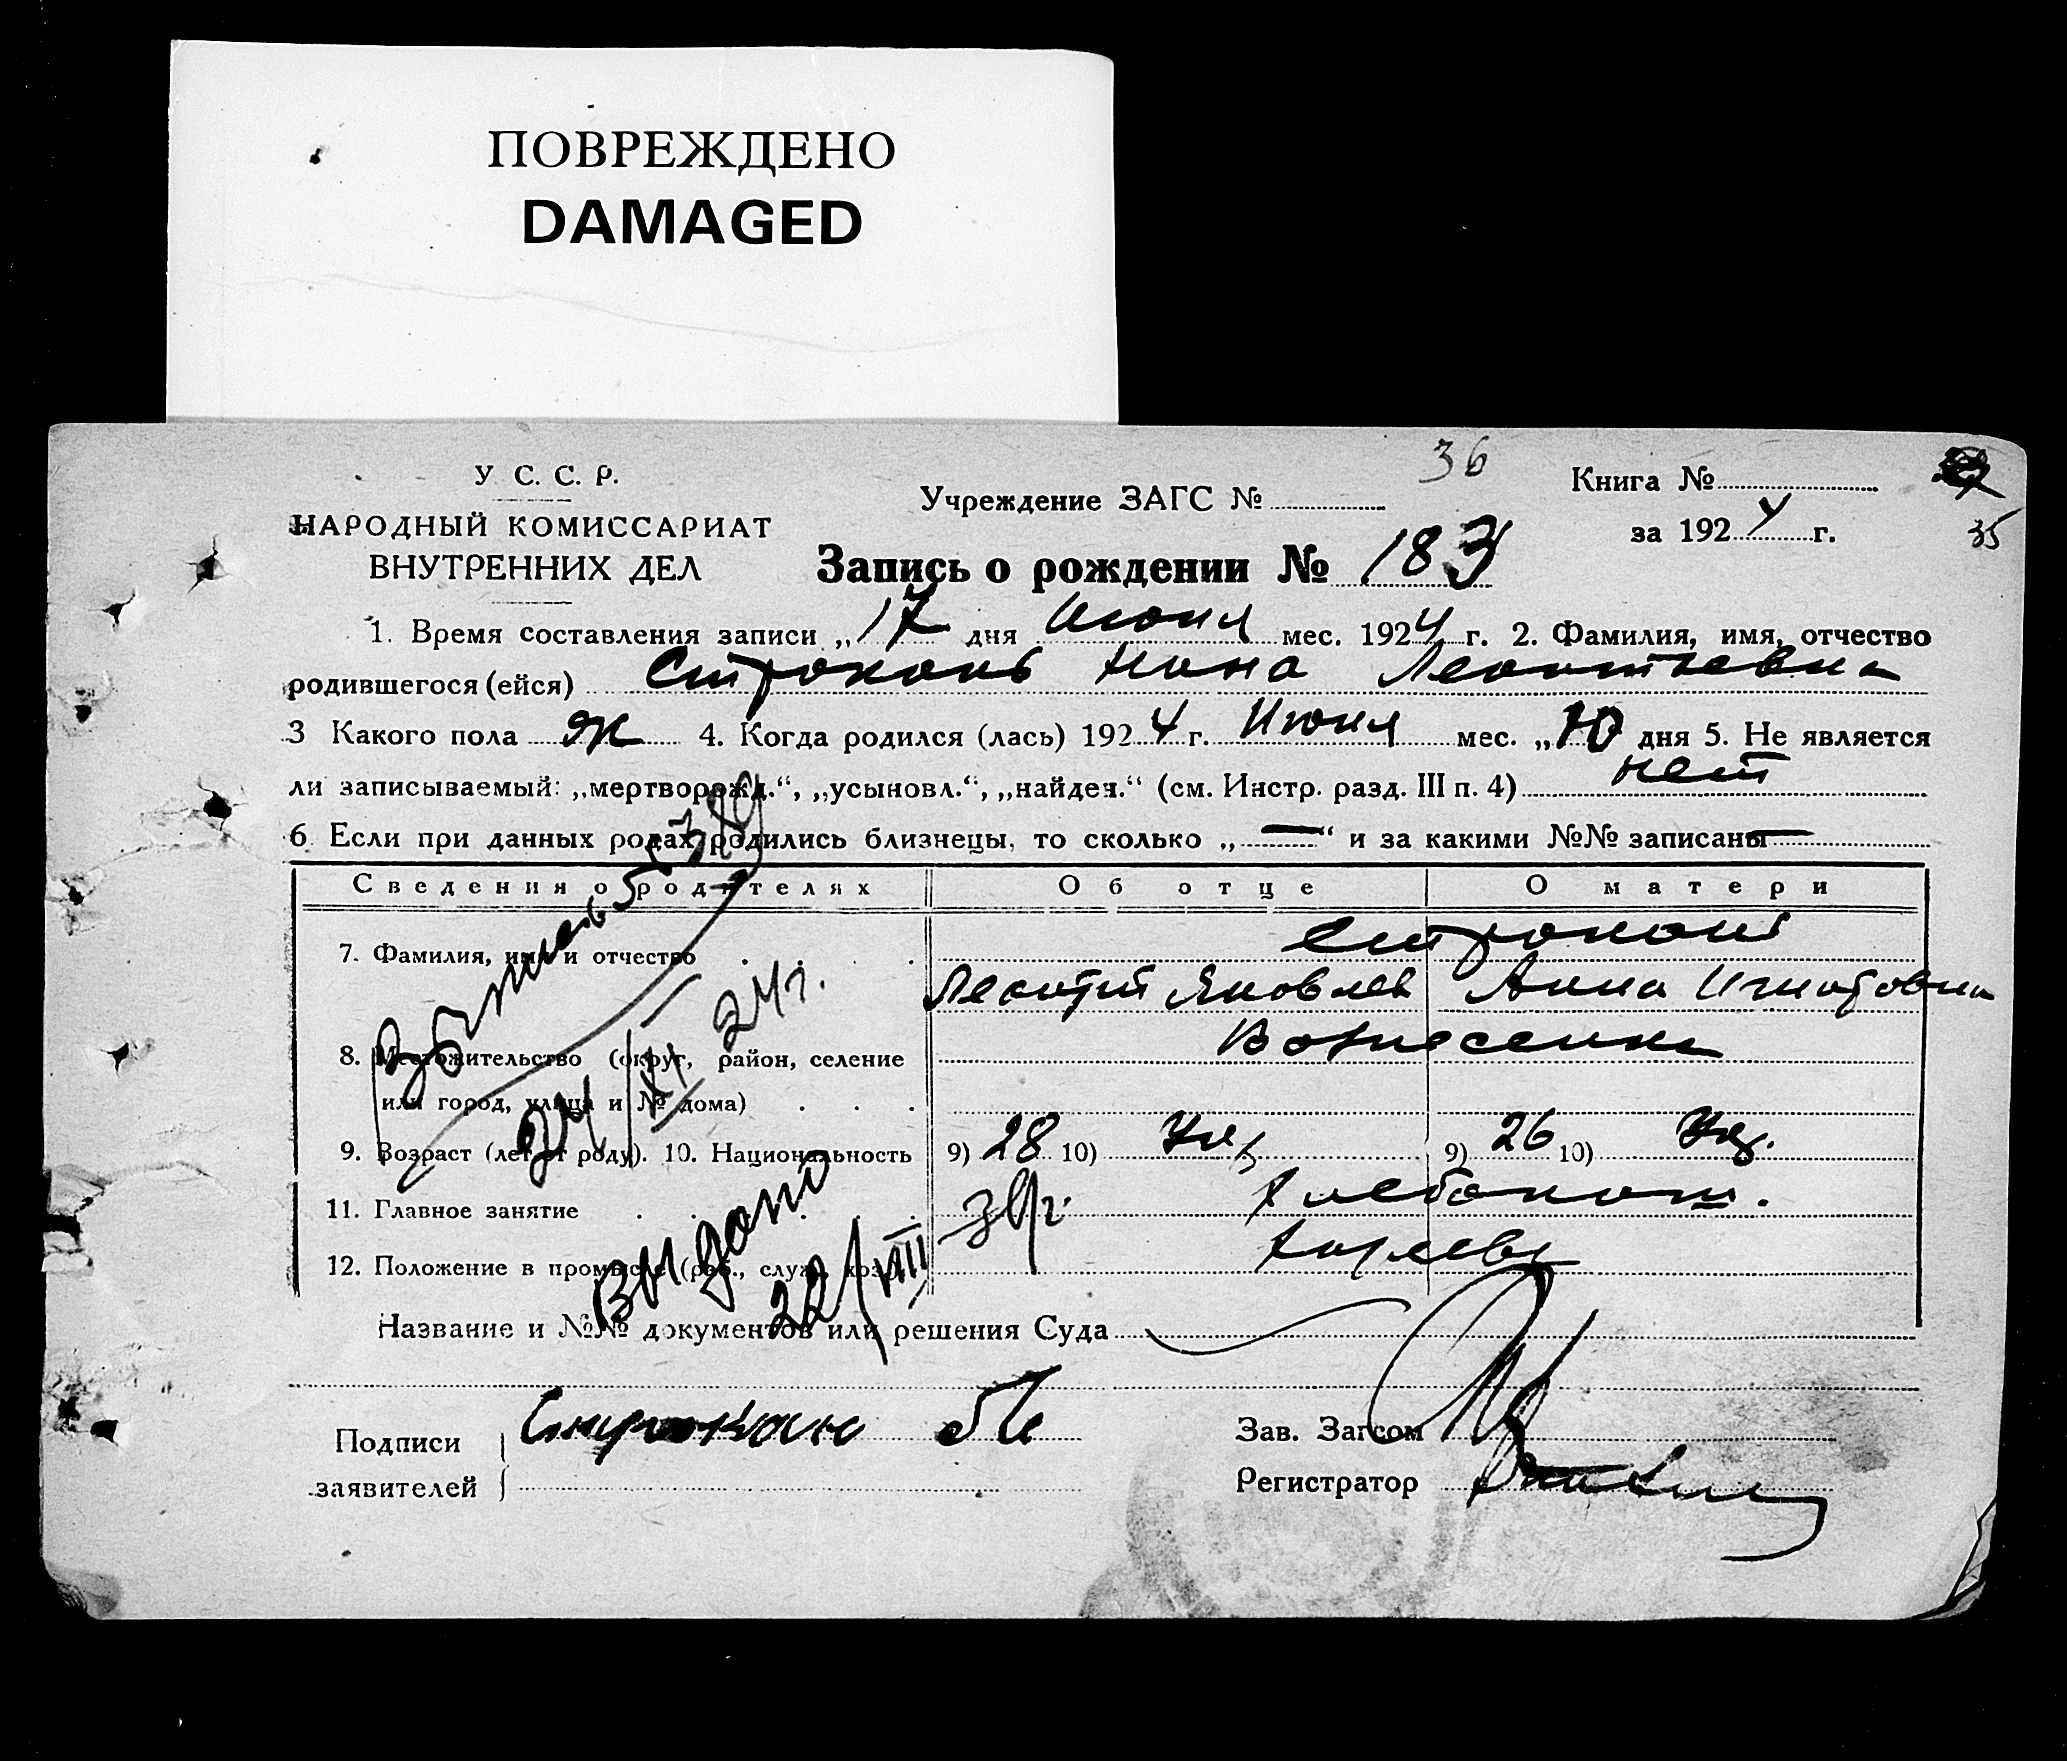 ПОВРЕЖДЕНО
DAMAGED
36
У. С. С. Р.
Учреждение ЗАГС №
Книга №
35
НАРОДНЫЙ КОМИССАРИАТ
за 1924 г.
ВНУТРЕННИХ ДЕЛ
Запись о рождении № 183
1. Время составления записи „17 дня Июня мес. 1924 г. 2. Фамилия, имя, отчество
родившегося (ейся) Строконь Нина Леонтьевна
3 Какого пола ж 4. Когда родился (лась) 1924 г. Июня мес. „10 дня 5. Не является
ли записываемый: „мертворожд.“, „усыновл.“, „найден.“ (см. Инстр. разд. III п. 4) нет
6. Если при данных родах родились близнецы, то сколько „—“ и за какими №№ записаны —
Сведения о родителях Об отце О матери
7. Фамилия, имя и отчество Строконь
Леонтий Яковлев Анна Игнатовна
8. Местожительство (округ, район, селение Вознесенка
или город, улица и № дома)
9. Возраст (лет от роду). 10. Национальность 9) 28 10) Укр 9) 26 10) Укр.
11. Главное занятие Хлебопаш.
12. Положение в промысле (раб., служ., хозр.)
24/XI 24г.
Выдано
22/VIII 30г.
Название и №№ документов или решения Суда
Подписи
заявителей
Строконь
Зав. Загсом
Регистратор